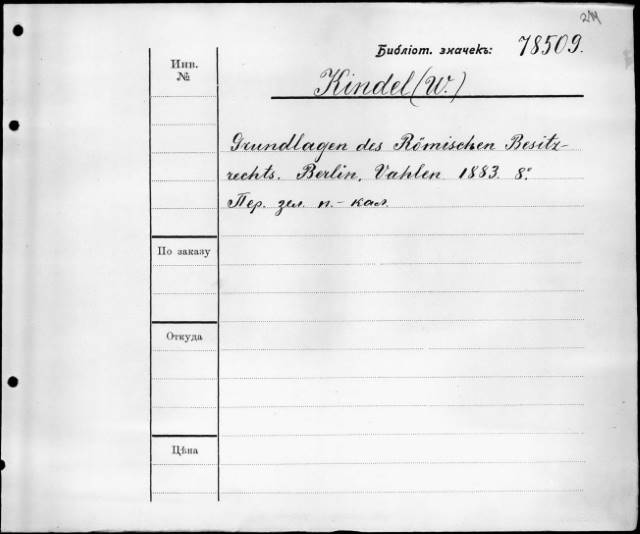 Библіот. значекъ: 78509.
Инв.
№
Kindel (W.)
Grundlagen des Römischen Besitz-
rechts. Berlin, Vahlen 1883. 8º
Пер. зел. п.- кал.
По заказу
Откуда
Цѣна